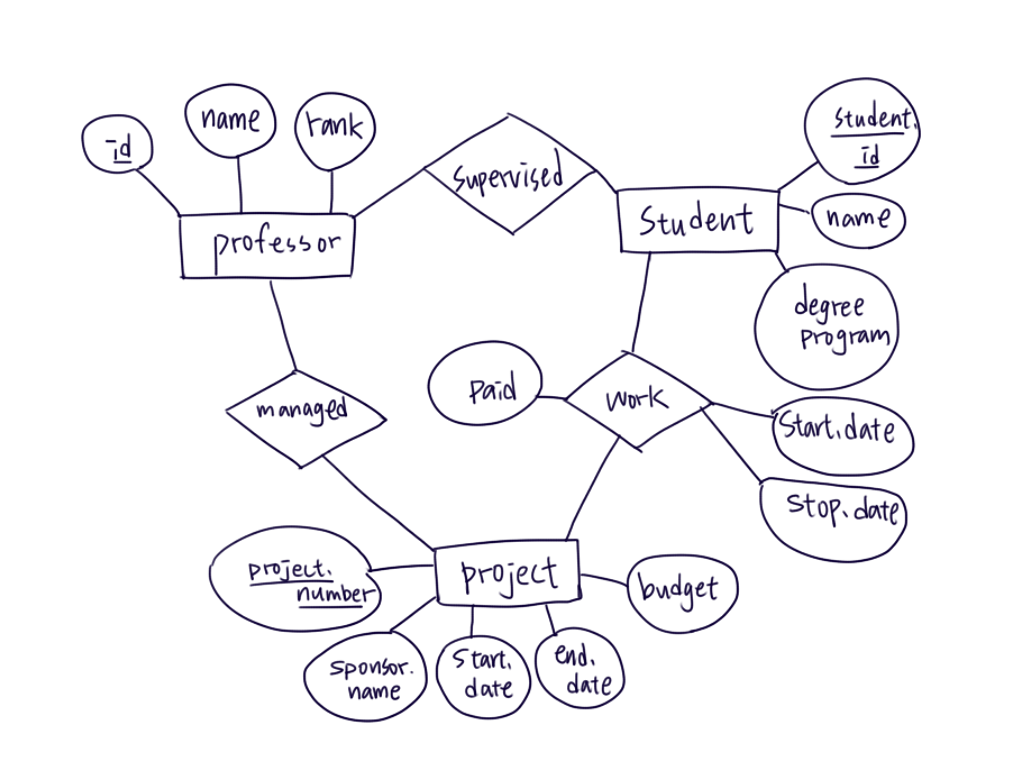 id
name
rank
supervised
student.
id
professor
Student
name
degree
program
managed
paid
work
Start.date
Stop.date
project.
number
project
budget
sponsor.
name
Start.
date
end.
date